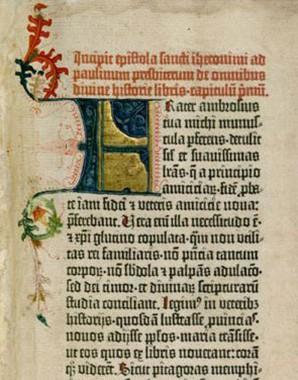 Incipit epistola sancti iheronimi ad
paulinum presbiterum de omnibus
divine historie libris. capitulū pꝛimū.
Frater ambrosius
tua michi munus-
cula ꝑferens. detulit
sił et suavissimas
lr̄as. q̄ a principio
amiciciaꝝ. fidē ꝓba-
te iam fidei ⁊ veteris amicicie nova:
ꝑferebant. Vera enī illa necessitudo ē.
⁊ xp̄i glutino copulata. qm̄ non utili-
tas rei familiaris. nō pn̄cia tantum
corpoꝝ. nō sb̄dola ⁊ palpās adulacō.
sed dei timor. et divinaꝝ scripturarum
studia conciliant. Legimꝰ in veteribꝰ
historijs. quosdā lustrasse ꝓuincias.
novos adijsse ppłos. maria trāsisse.
ut eos quos ex libris noverant: corā
q̄ꝫ viderēt. Sicut pitagoras memphi-